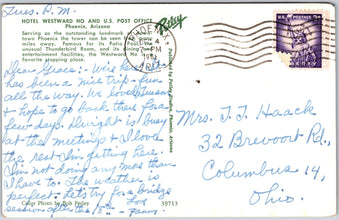 Tues. P.M.
HOTEL WESTWARD HO AND U.S. POST OFFICE
Phoenix, Arizona
Serving as the outstanding landmark of downtown Phoenix the tower can be seen for many
miles away. Famous for its Patio Pool, the
unusual Thunderbird Room, and its dining and
entertainment facilities, the Westward Ho is a
favorite stopping place.
Petley
PHOENIX
PM
ARIZ.
Dear Grace: - 
has been a nice trip - fun
all the way. We loved Tucson
+ hope to go back there for a
few days. Knight is busy
at the meetings + I love
the rest I'm getting here.
I'm not doing any more than
I have to. The weather is
perfect. Let's try for a bridge
session after the 18th. Love
Fanny
Color Photo by Bob Petley
59713
Mrs. T. J. Haack
32 Brevoort Rd.,
Columbus 14,
Ohio.